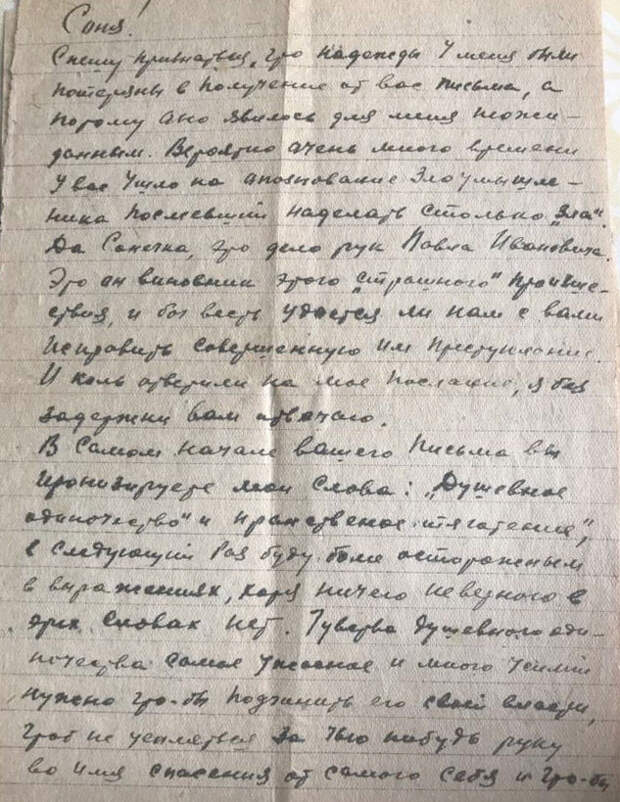 Соня!
Спешу признаться, что надежды у меня были
потеряны в получение от вас письма, а
потому оно явилось для меня неожи-
данным. Вероятно очень много времени
у вас ушло на опознование злоумышле-
ника посмевший наделать столько „зла“.
Да Сонечка, это дело рук Павла Ивановича.
Это он виновник этого „страшного“ происше-
ствия, и бог весть удастся ли нам с вами
исправить совершенную им преступление.
И коль ответили на мое послание, я без
задержки вам отвечаю.
В самом начале вашего письма вы
иронизируете мои слова: „Душевное
одиночество“ и нравственое тяготение“,
в следующий раз буду более осторожным
в выражениях, хотя ничего неверного в
этих словах нет. Чувства душевного оди-
ночества самое ужасное и много усилий
нужно что-бы подчинить его своей власти,
чтоб не уцепляться за чью нибудь руку
во имя спасения от самого себя и что-бы